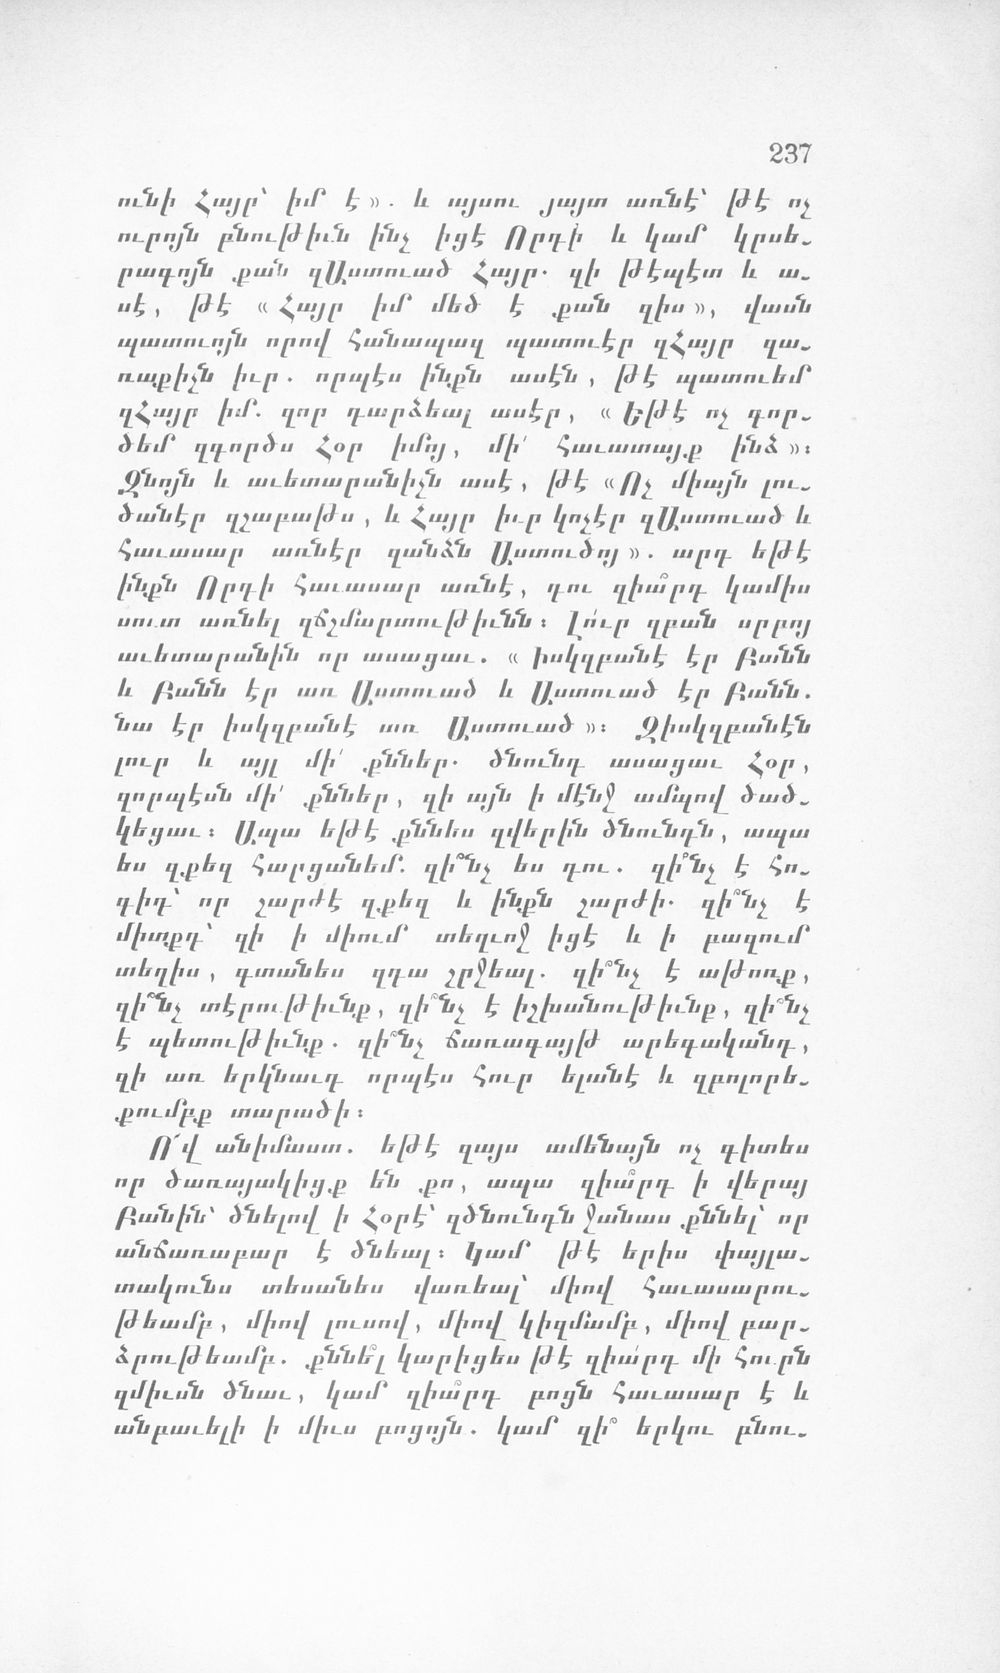 237
ունի Հայր՝ իմ է». և այսու յայտ առնէ՝ թէ ոչ
ուրոյն բնութիւն ինչ իցէ Որդի և կամ կրսե֊
րագոյն քան զԱստուած Հայր. զի թէպէտ և ա֊
սէ, թէ «Հայր իմ մեծ է քան զիս», վասն
պատուոյն որով հանապազ պատուէր զՀայր զա֊
ռաքիչն իւր. որպէս ինքն ասէն, թէ պատուեմ
զՀայր իմ. զոր դարձեալ ասէր, «Եթէ ոչ գոր֊
ծեմ զգործս Հօր իմոյ, մի՛ հաւատայք ինձ»։
Զնոյն և աւետարանիչն ասէ, թէ «Ոչ միայն լու֊
ծանէր զշաբաթս, և Հայր իւր կոչէր զԱստուած և
հաւասար առնէր զանձն Աստուծոյ». արդ եթէ
ինքն Որդի հաւասար առնէ, դու զիա՞րդ կամիս
սուտ առնել զճշմարտութիւնն։ Լո՛ւր զբան սրբոյ
աւետարանին որ ասացաւ. «Իսկզբանէ էր Բանն
և Բանն էր առ Աստուած և Աստուած էր Բանն.
նա էր իսկզբանէ առ Աստուած»։ Զիսկզբանէն
լուր և այլ մի՛ քններ. ծնունդ ասացաւ Հօր,
զորպէսն մի՛ քններ, զի այն ի մէնջ ամպով ծած֊
կեցաւ։ Ապա եթէ քննես զվերին ծնունդն, ապա
ես զքեզ հարցանեմ. զի՞նչ ես դու. զի՞նչ է հո֊
գիդ՝ որ շարժէ զքեզ և ինքն շարժի. զի՞նչ է
միտքդ՝ զի ի միում տեղւոջ իցէ և ի բազում
տեղիս, գտանես զդա շրջեալ. զի՞նչ է աթոռք,
զի՞նչ տէրութիւնք, զի՞նչ է իշխանութիւնք, զի՞նչ
է պետութիւնք. զի՞նչ ճառագայթ արեգականդ,
զի առ երկնաւդ որպէս հուր ելանէ և զբոլորե֊
քումբք տարածի։
Ո՜վ անիմաստ. եթէ զայս ամենայն ոչ գիտես
որ ծառայակիցք են քո, ապա զիա՞րդ ի վերայ
Բանին՝ ծնելով ի Հօրէ՝ զծնունդն ջանաս քննել՝ որ
անճառաբար է ծնեալ։ Կամ թէ երիս փայլա֊
տակունս տեսանես վառեալ՝ միով հաւասարու֊
թեամբ, միով լուսով, միով կիզմամբ, միով բար֊
ձրութեամբ. քննե՞լ կարիցես թէ զիա՛րդ մի հուրն
զմիւսն ծնաւ, կամ զիա՞րդ բոցն հաւասար է և
անբաւելի ի միւս բոցոյն. կամ զի՞ երկու բնու֊